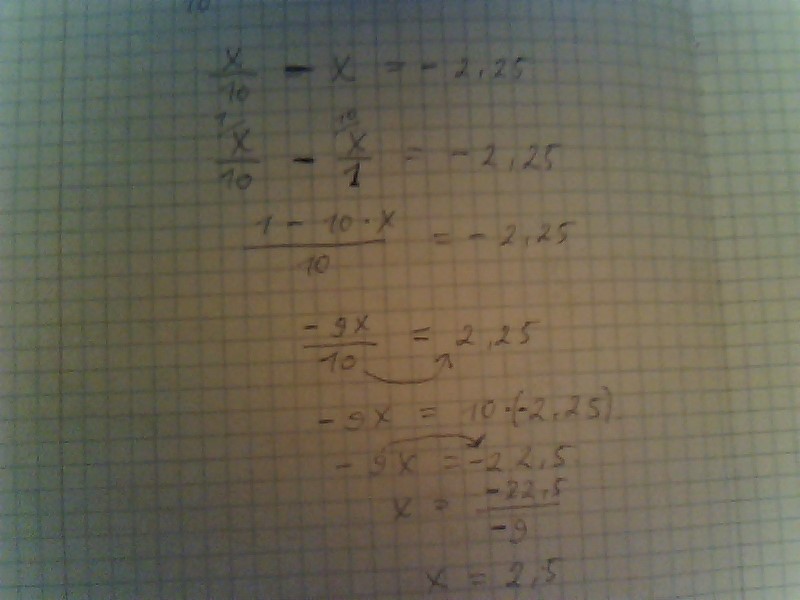 10
x/10 - x = - 2,25
1 x/10 - 10 x/1 = - 2,25
1 - 10 · x/10 = - 2,25
- 9x/10 = 2,25
- 9x = 10 · (-2,25)
- 9x = -22,5
x = -22,5/-9
x = 2,5